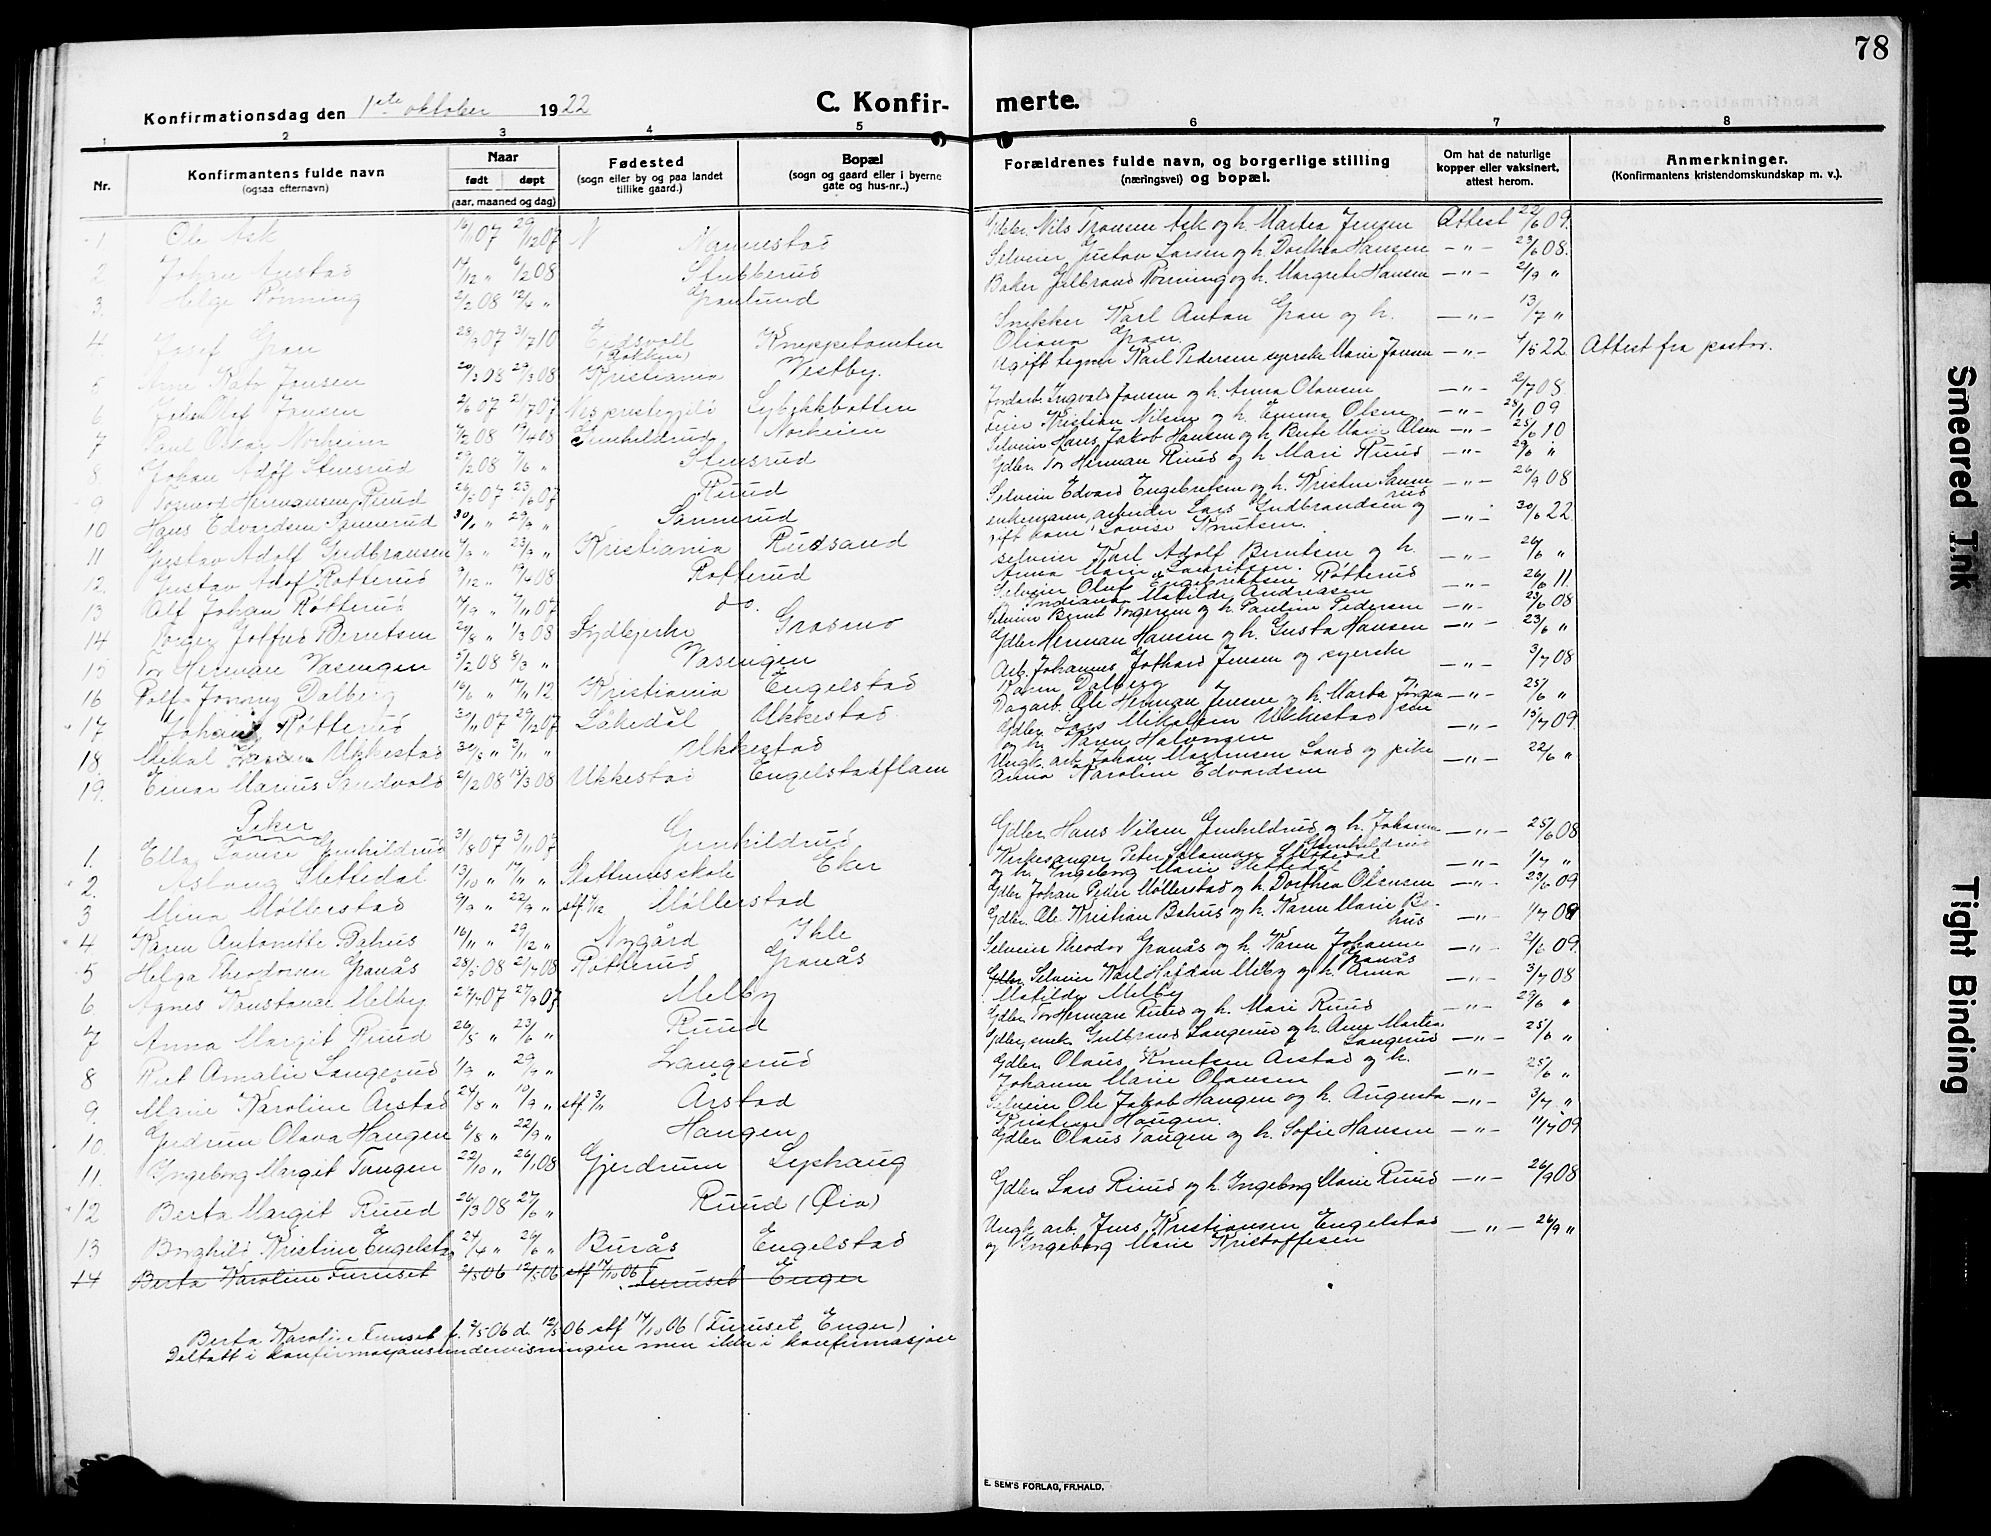 78
Konfirmationsdag den 1ste oktober 1922
C. Konfirmerte.
1 2 3 4 5 6 7 8
Nr.
Konfirmantens fulde navn
(ogsaa efternavn)
Naar
født døpt
(aar, maaned og dag)
Fødested
(sogn eller by og paa landet
tillike gaard.)
Bopæl
(sogn og gaard eller i byerne
gate og hus-nr..)
Forældrenes fulde navn, og borgerlige stilling
(næringsvei) og bopæl.
Om hat de naturlige
kopper eller vaksinert,
attest herom.
Anmerkninger.
(Konfirmantens kristendomskundskap m. v.).
1 Ole Ask 16/11 07 29/12 07 N Nannestad Gdbr. Nils Tronsen Ask og h. Martea Jensen Attest 22/6 09.
2 Johan Anstad 14/12 " 6/2 08 Stubberud Selveier Gustav Larsen og h. Dorthea Hansen —"— 23/6 08.
3. Helge Rønning 2/2 08 12/4 " Granlund Baker Gulbrand Rønning og h. Margrete Hansen —"— 2/9 "
4 Josef Gran 28/9 07 3/7 10 Eidsvoll (Bakken) Kneppetomten Snekker Karl Anton Gran og h. Oliana Gran. —"— 13/7 "
5 Arne Jensen 20/3 08 29/3 08 Kristiania Vestby. Ugift tegner Karl Pedersen syerske Marie Jensen —"— 4/5 22 Attest fra pastor.
6 Johan Olaf Jansen 2/6 07 21/7 07 Nes prestegjeld Lybekkbatten Jordarb. Ingvald Jansen og h. Anna Olausen —"— 2/7 08
7 Paul Oscar Norheim 7/2 08 19/4 08 Gunhildrud Norheim Feier Kristian Nilsen og h. Emma Olsen —"— 28/1 09
8 Johan Adolf Stensrud 29/2 08 7/6 " Stensrud Selveier Hans Jakob Hansen og h. Berte Marie Olsen —"— 25/6 10
9 Tormod Hermansen Ruud 26/5 07 23/6 07 Ruud Gdbr. Tor Herman Ruud og h. Mari Ruud —"— 29/6 "
10 Hans Edvardsen Sannerud 30/1 " 29/9 " Sannerud Selveier Edvard Engebretsen og h. Kristine Sannerud —"— 26/9 08
11 Gustav Adolf Gudbransen 4/9 " 23/9 " Kristiania Rudsand enkemann, arbeider Lars Gudbrandsen og gift kone Lovise Knutsen. —"— 30/6 22.
12. Gustav Adolf Røtterud 9/12 " 19/4 08 Røtterud selveier Karl Adolf Berntsen og h. Anna Marie Lauritsen. —"— 26/6 "
13 Alf Johan Røtterud 14/9 " 7/11 07 do. Selveier Oluf Engebretsen Røtterud og h. Indiane Matilde Andreasen —"— 26/6 11.
14 Torger Jotfred Berntsen 24/8 " 1/3 08 Lydbjerke Grasmo Selveier Bernt Torgersen og h. Pauline Pedersen —"— 23/6 08
15 Tor Herman Vasengen 5/2 08 8/3 " Vasengen Gdbr Herman Hansen og h. Gusta Hansen —"— 23/6 "
16 Rolf Jonny Dalberg 16/6 " 17/11 12 Kristiania Engelstad Arb. Johannes Gothard Jensen og syerske Karen Dalberg —"— 3/7 08
17 Johan Røtterud 30/11 07 29/12 07 Låkedal Ukkestad Dagarb. Ole Herman Jensen og h. Marta Jørgensen —"— 25/6 "
18. Mikal Larsen Ukkestad 30/8 " 3/11 " Ukkestad Gdbr. Lars Mikalsen Ukkestad og h. Karen Halvorsen —"— 15/7 09.
19. Einar Marius Sandvold 2/2 08 15/3 08 Ukkestad Engelstadflaen Ungk. arb. Johan Martinsen Sand og pike Anna Karoline Edvardsen —"— 22/6 "
Piker
1. Ella Lovise Gunhildrud 31/8 07 3/11 07 Gunhildrud Gdbr. Hans Nilsen Gunhildrud og h. Johanne Gunhildrud —"— 25/6 08
2. Aslaug Slettedal 13/10 " 17/11 " Slattumskole Eker Kirkesanger Peter Salamon Slettedal og h. Ingeborg Marie Slettedal —"— 1/7 "
3 Mina Møllerstad 9/9 " 22/9 " stf 1/12 Møllerstad Gdbr Johan Peder Møllerstad og h. Dorthea Olausen —"— 23/6 09
4 Karen Antonette Bahus 16/11 " 29/12 " Nygård Ihle Gdbr. Ole Kristian Bahus og h. Karen Marie Bahus —"— 1/7 09
5 Helga Theodorsen Granås 28/5 08 21/7 08 Røtterud Granås Selveier Theodor Granås og h. Karen Johanne Granås —"— 2/6 09.
6 Agnes Konstanse Melby 24/7 07 27/9 07 Melby Gdbr. Selveier Karl Hafdan Melby og h. Anna Matilde Melby —"— 3/7 08
7 Anna Margit Ruud 26/5 " 23/6 " Ruud Gdbr. Tor Herman Ruud og h. Mari Ruud —"— 29/6 "
8 Rut Amalie Langerud 1/9 " 29/9 " Langerud Gdbr, snek. Gulbrand Langerud og h. Anne Martea Langerud —"— 25/6 "
9. Marie Karoline Årstad 24/8 " 10/9 " stf 3/11 Årstad Gdbr. Olaus Knutsen Arstad og h. Johanne Marie Olausen —"— 25/6 "
10. Gudrun Olava Haugen 6/8 " 22/9 " Haugen Selveier Ole Jakob Haugen og h. Augusta Kristiane Haugen. —"— 3/7 "
11. Ingeborg Margit Tangen 22/10 " 26/1 08 Gjerdrum Lyshaug Gdbr. Olaus Tangen og h. Sofie Hansen —"— 11/7 09
12 Berta Margit Ruud 26/3 08 27/6 " Ruud (Øia) Gdbr. Lars Ruud og h. Ingeborg Marie Ruud —"— 26/9 08
13 Borghild Kristine Engelstad 24/4 " 26/6 " Burås Engelstad Ungk. arb. Jens Kristiansen Engelstad og Ingeborg Marie Kristoffersen —"— 26/9 "
14 Berta Karoline Furuset 2/5 06 12/5 06 stf 14/10 06 Furuset Enger
Berta Karoline Furuset f. 2/5 06 d. 12/5 06 stf 14/10 06 (Furuset Enger)
Deltatt i konfirmasjonsundervisningen men ikke i konfirmasjon
E. SEM'S FORLAG, FR.HALD.
Smeared Ink
Tight Binding